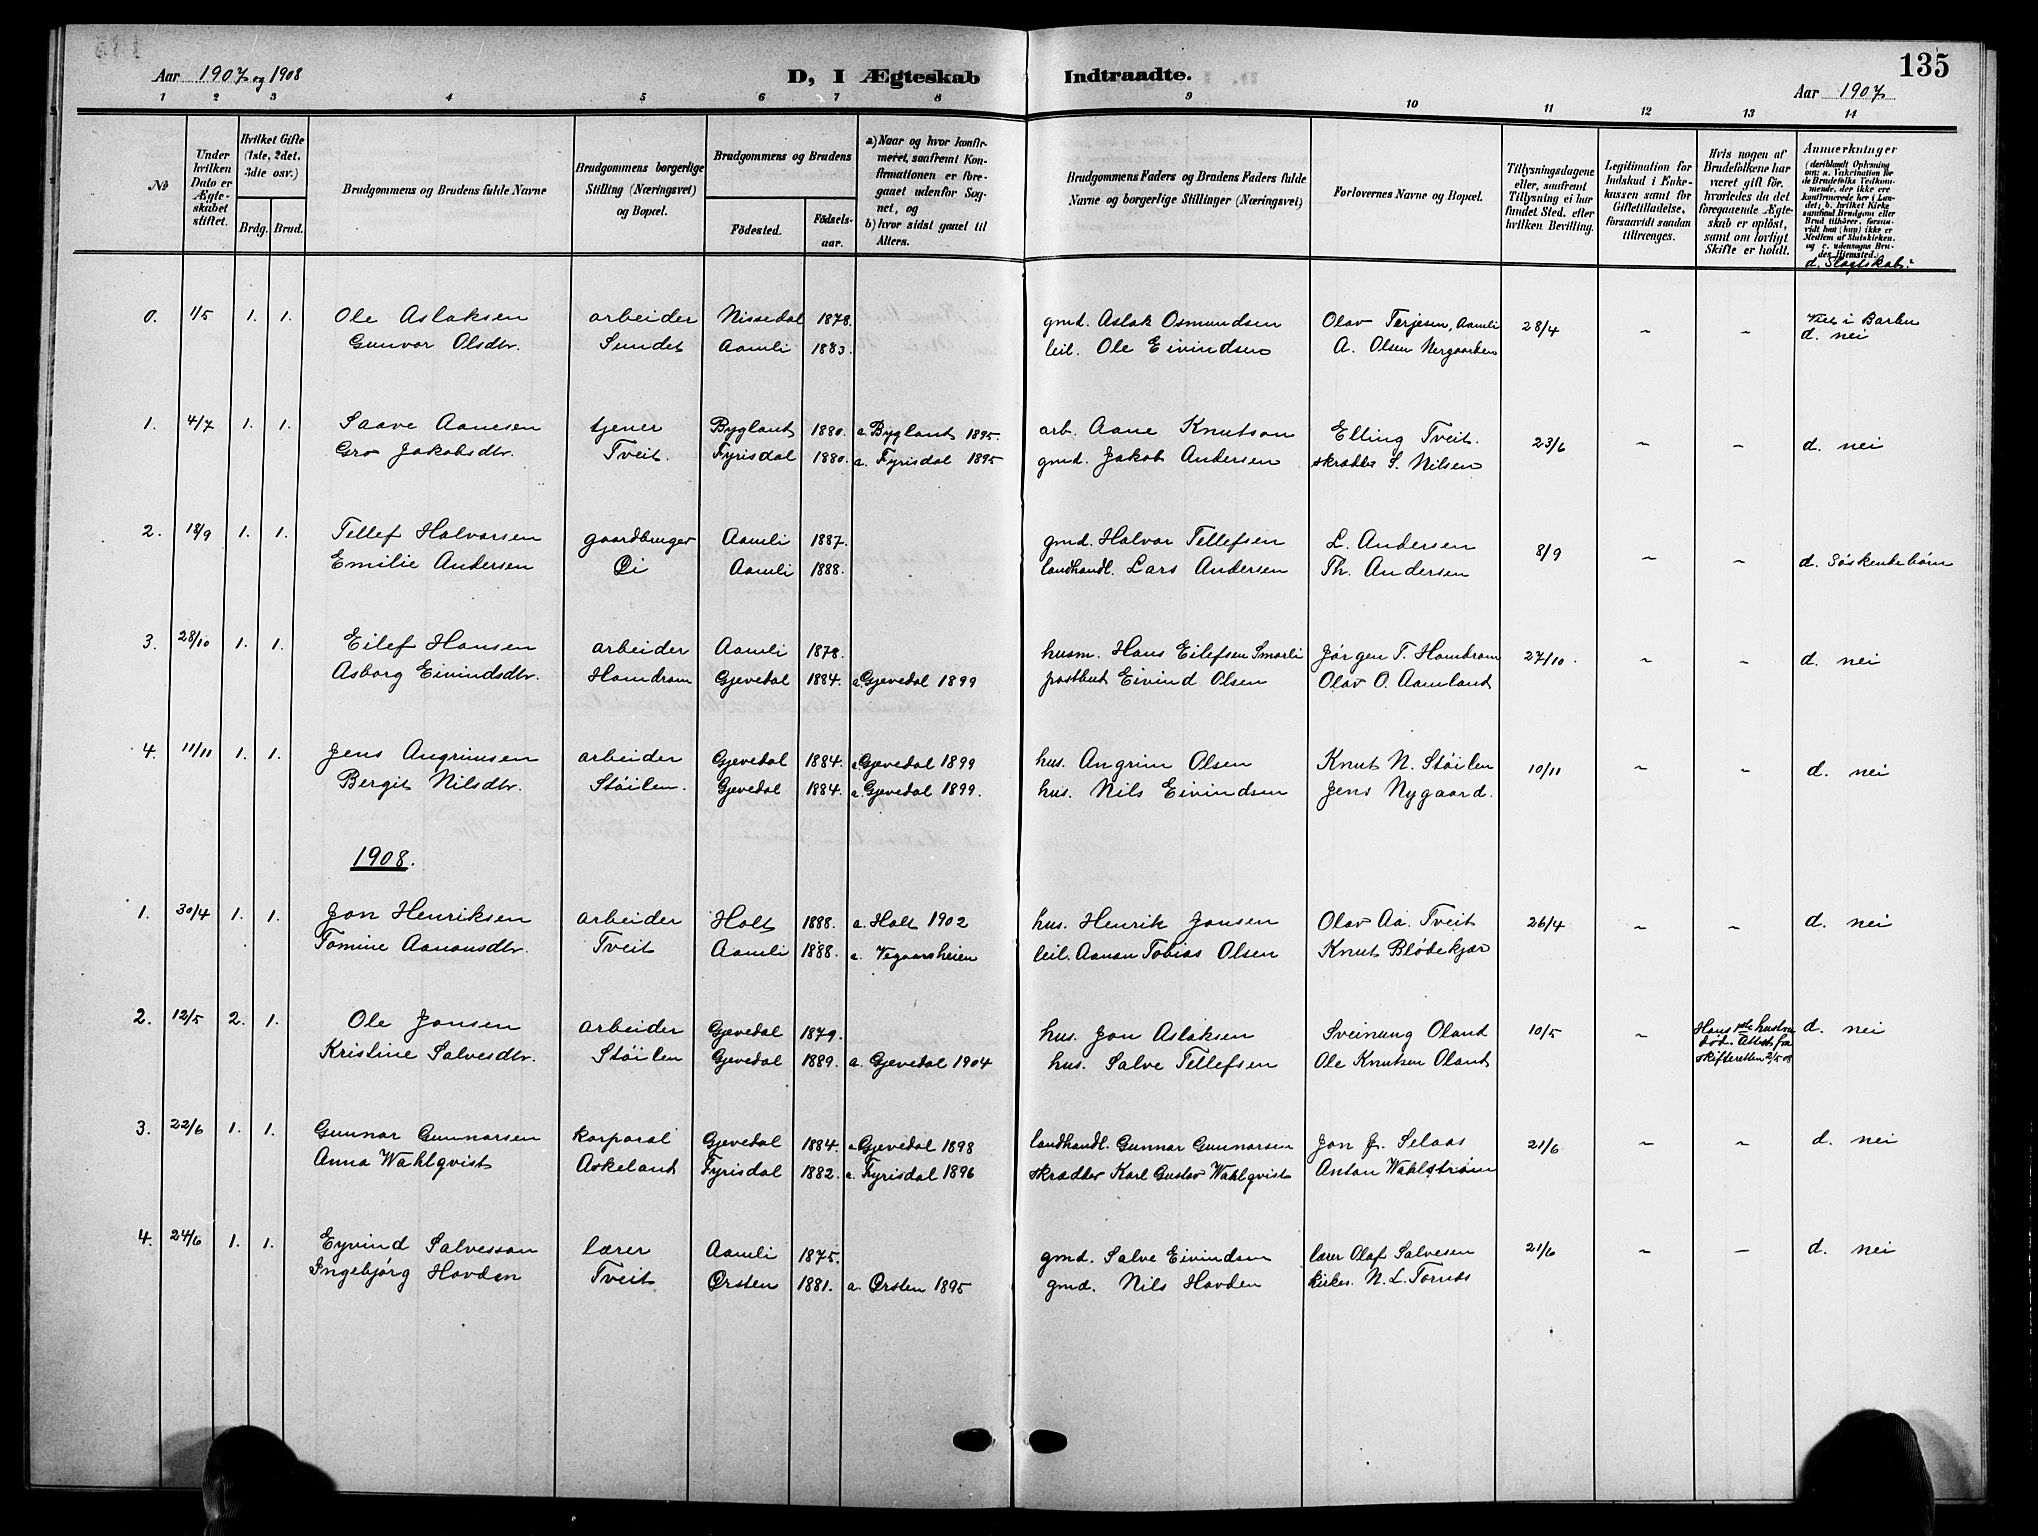 135
Aar 1907 og 1908
D, I Ægteskab Indtraadte.
Aar 1907
1 2 3 4 5 6 7 8 9 10 11 12 13 14
No
Under hvilken Dato er Ægteskabet stiftet.
Hvilket Gifte (1ste, 2det, 3die osv.)
Brdg. Brud.
Brudgommens og Brudens fulde Navne
Brudgommens borgerlige Stilling (Næringsvei) og Bopæl.
Brudgommens og Brudens
Fødested. Fødselsaar.
a) Naar og hvor konfirmeret, saafremt Konfirmationen er foregaaet udenfor Sognet, og
b) hvor sidst gaaet til Alters.
Brudgommens Faders og Brudens Faders fulde Navne og borgerlige Stillinger (Næringsvei)
Forlovernes Navne og Bopæl.
Tillysningsdagene eller, saafremt Tillysning ei har fundet Sted, efter hvilken Bevilling.
Legitimation for Indskud i Enkekassen samt for Giftetilladelse, forsaavidt saadan tiltrænges.
Hvis nogen af Brudefolkene har været gift før, hvorledes da det foregaaende Ægteskab er opløst, samt om lovligt Skifte er holdt.
Anmerkninger
d. Slægtskab:
0. 1/5 1. 1. Ole Aslaksen arbeider Nissedal 1878. gmd. Aslak Osmundsen Olav Terjesen, Aamli 28/4 ~ ~ Viet i Barbu
Gunvor Olsdtr. Sundet Aamli 1883. leil. Ole Eivindsen A. Olsen Nergaarden d. nei
1. 4/7 1. 1. Saave Aanesen tjener Bygland 1880. a. Bygland 1895. arb. Aane Knutson Elling Tveit. 23/6 ~ ~ d. nei
Gro Jakobsdtr. Tveit. Fyrisdal 1880. a. Fyrisdal 1895 gmd. Jakob Andersen skrædder S. Nilsen
2. 18/9 1. 1. Tellef Halvorsen gaardbruger Aamli 1887. gmd. Halvor Tellefsen L. Andersen 8/9 ~ ~ d. Søskendebørn
Emilie Andersen Øi Aamli 1888. landhandl. Lars Andersen Th. Andersen
3. 28/10 1. 1. Eilef Hansen arbeider Aamli 1878. husm. Hans Eilefsen Smørli Jørgen T. Hamdram 27/10. ~ ~ d. nei
Asborg Eivindsdtr. Hamdram Gjevedal 1884. a. Gjevedal 1899 postbud Eivind Olsen Olav O. Aamland
4. 11/11 1. 1. Jens Angrimsen arbeider Gjevedal 1884. a. Gjevedal 1899 hus. Angrim Olsen Knut N. Støilen 10/11 ~ ~ d. nei
Bergit Nilsdtr. Støilen. Gjevedal 1884. a. Gjevedal 1899. hus. Nils Eivindsen Jens Nygaard.
1908.
1. 30/4 1. 1. Jon Henriksen arbeider Holt 1888. a. Holt 1902 hus. Henrik Jonsen Olav Aa. Tveit 26/4 ~ ~ d. nei
Tomine Aanonsdtr. Tveit Aamli 1888. a. Vegaarsheien leil. Aanon Tobias Olsen Knut Blødekjær
2. 12/5 2. 1. Ole Jonsen arbeider Gjevedal 1879. hus. Jon Aslaksen Sveinung Oland 10/5 ~ Hans 1ste hustru død. Attest fra skifteretten 2/5 08 d. nei
Kristine Salvesdtr. Støilen Gjevedal 1889. a. Gjevedal 1904 hus. Salve Tellefsen Ole Knutsen Oland
3. 22/6 1. 1. Gunnar Gunnarsen korporal Gjevedal 1884. a. Gjevedal 1898 landhandl. Gunnar Gunnarsen Jon J. Selaas 21/6 ~ ~ d. nei
Anna Wahlqvist Askeland Fyrisdal 1882. a. Fyrisdal 1896 skrædder Karl Gustav Wahlqvist Anton Wahlstrøm
4. 24/6 1. 1. Eyvind Salvesson lærer Aamli 1875. gmd. Salve Eivindsen lærer Olaf Salvesen 21/6 ~ ~ d. nei
Ingebjørg Hovden Tveit Ørsten 1881. a. Ørsten 1895 gmd. Nils Hovden kirkes. N. L. Tornes